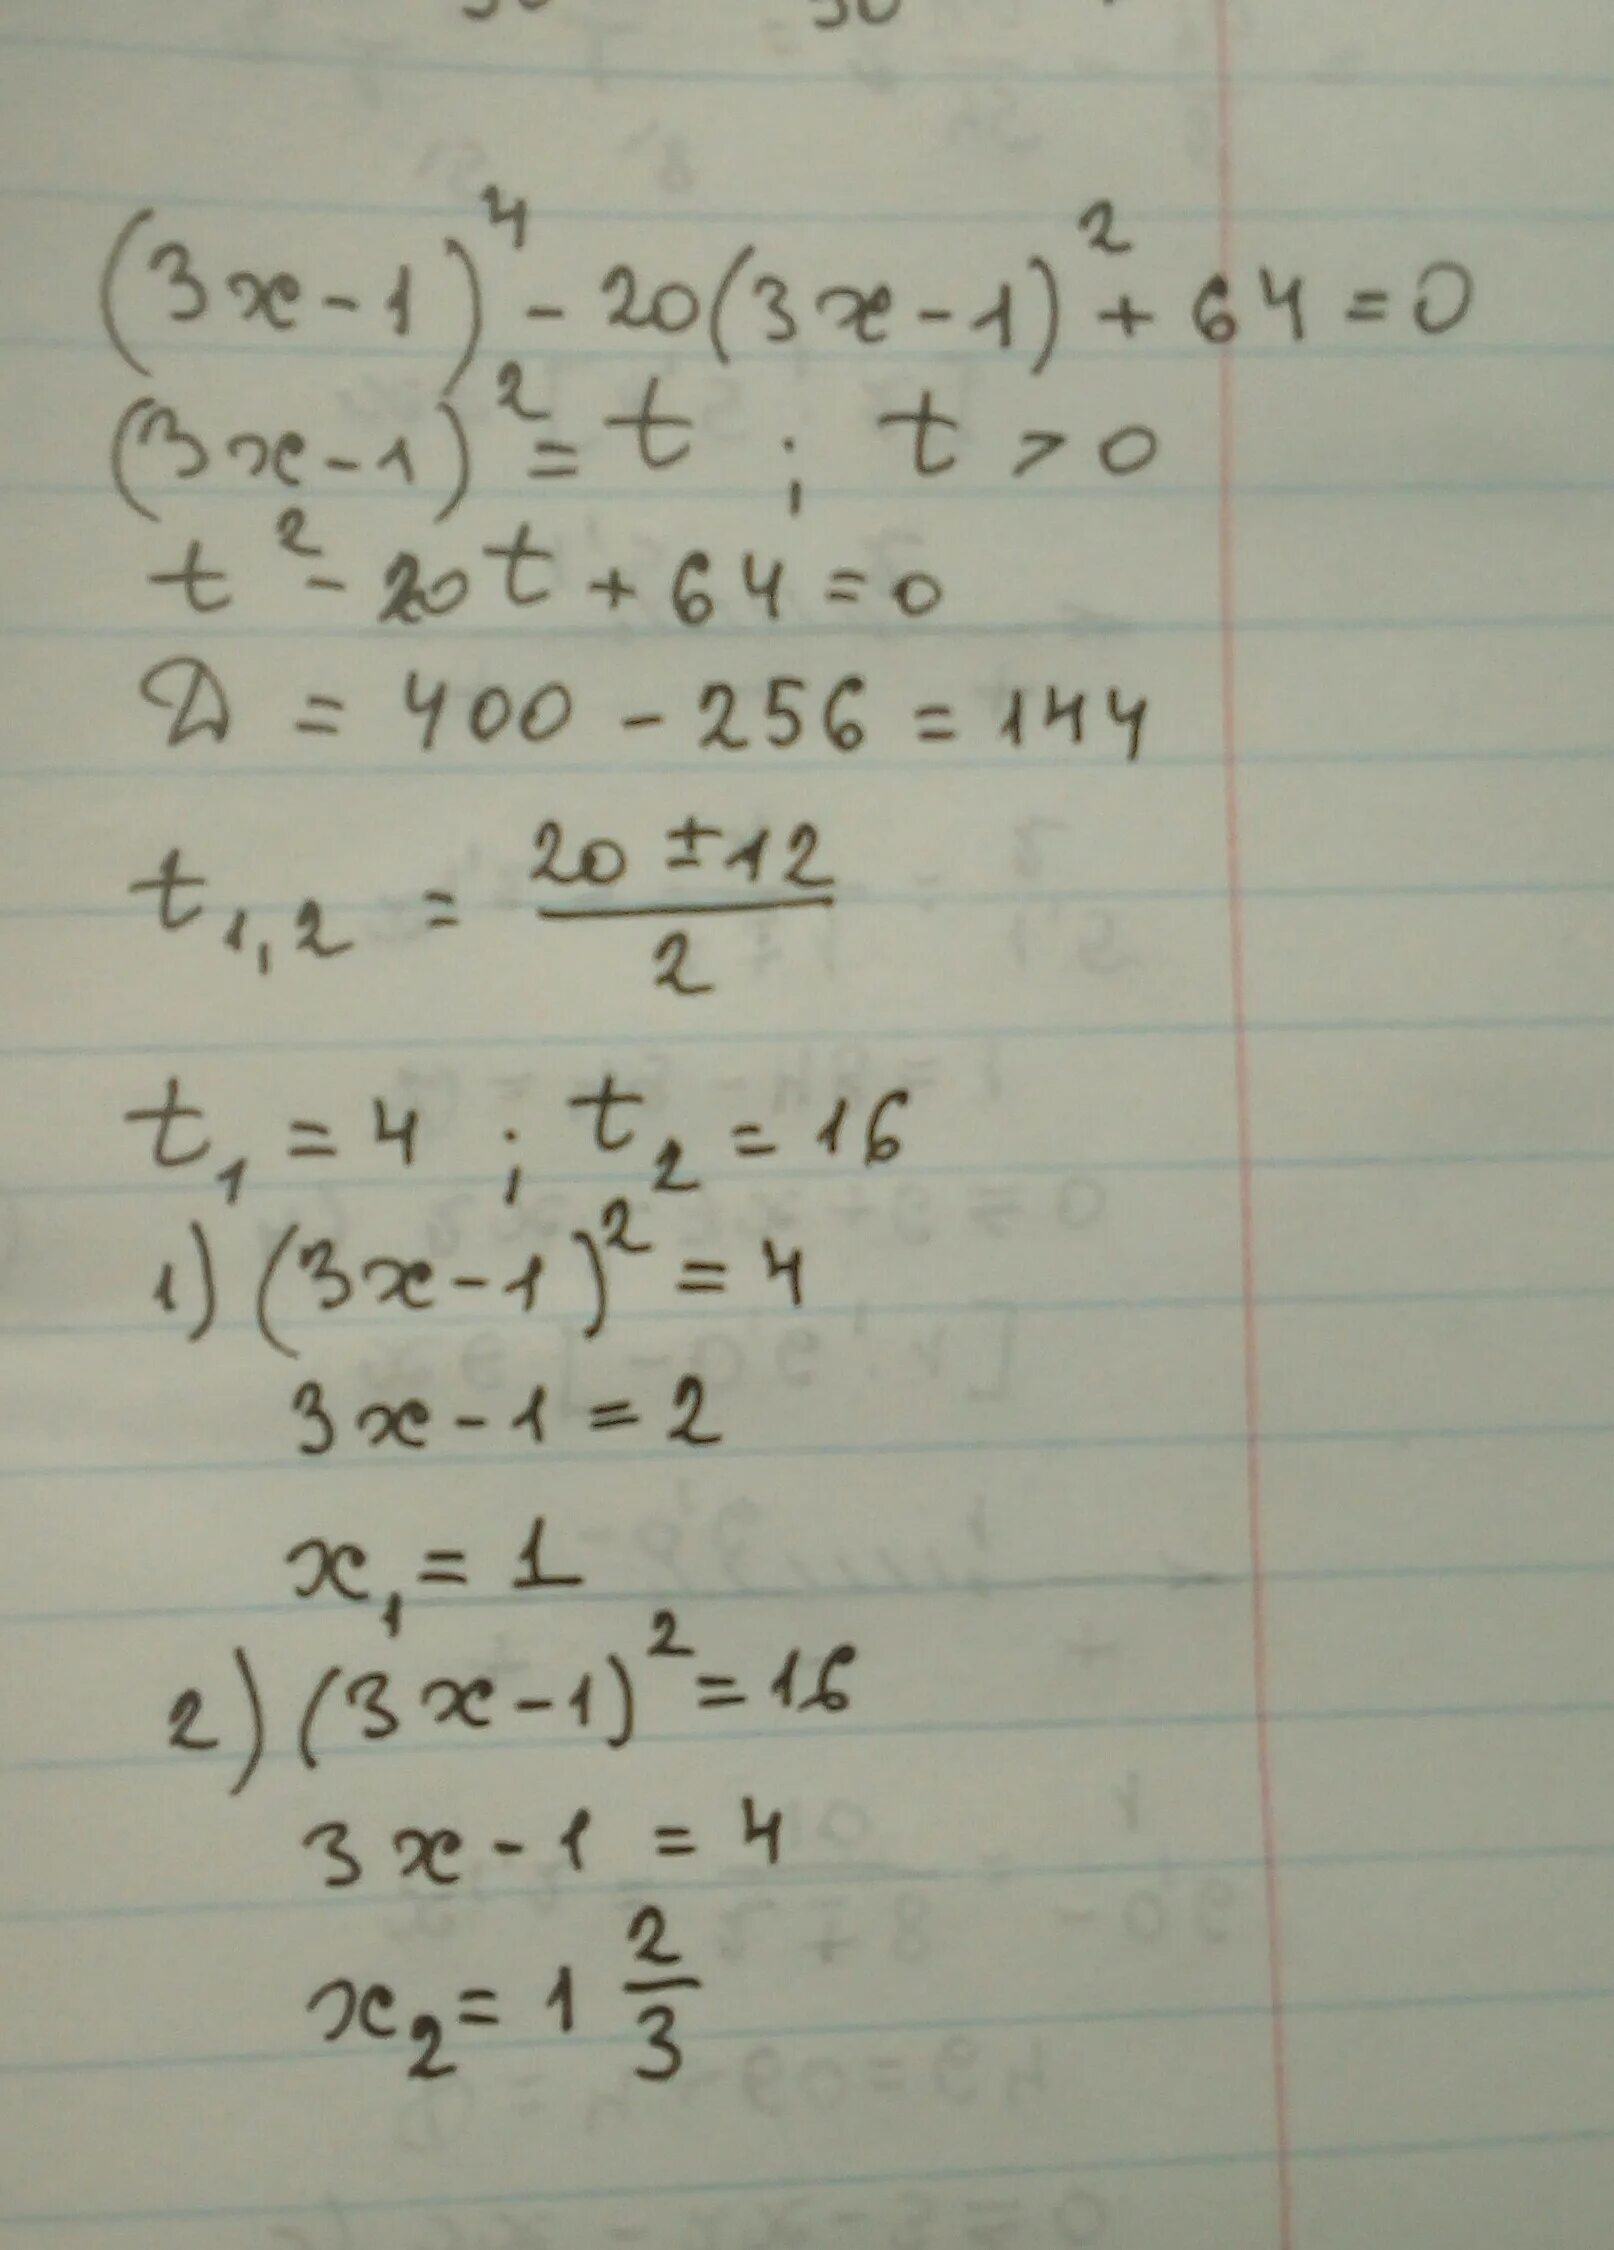 (3x-1)⁴ - 20(3x-1)² + 64 = 0
(3x-1)² = t ; t > 0
t² - 20t + 64 = 0
D = 400 - 256 = 144
t₁,₂ = (20 ± 12)/2
t₁ = 4 ; t₂ = 16
1) (3x-1)² = 4
3x - 1 = 2
x₁ = 1
2) (3x-1)² = 16
3x - 1 = 4
x₂ = 1 2/3